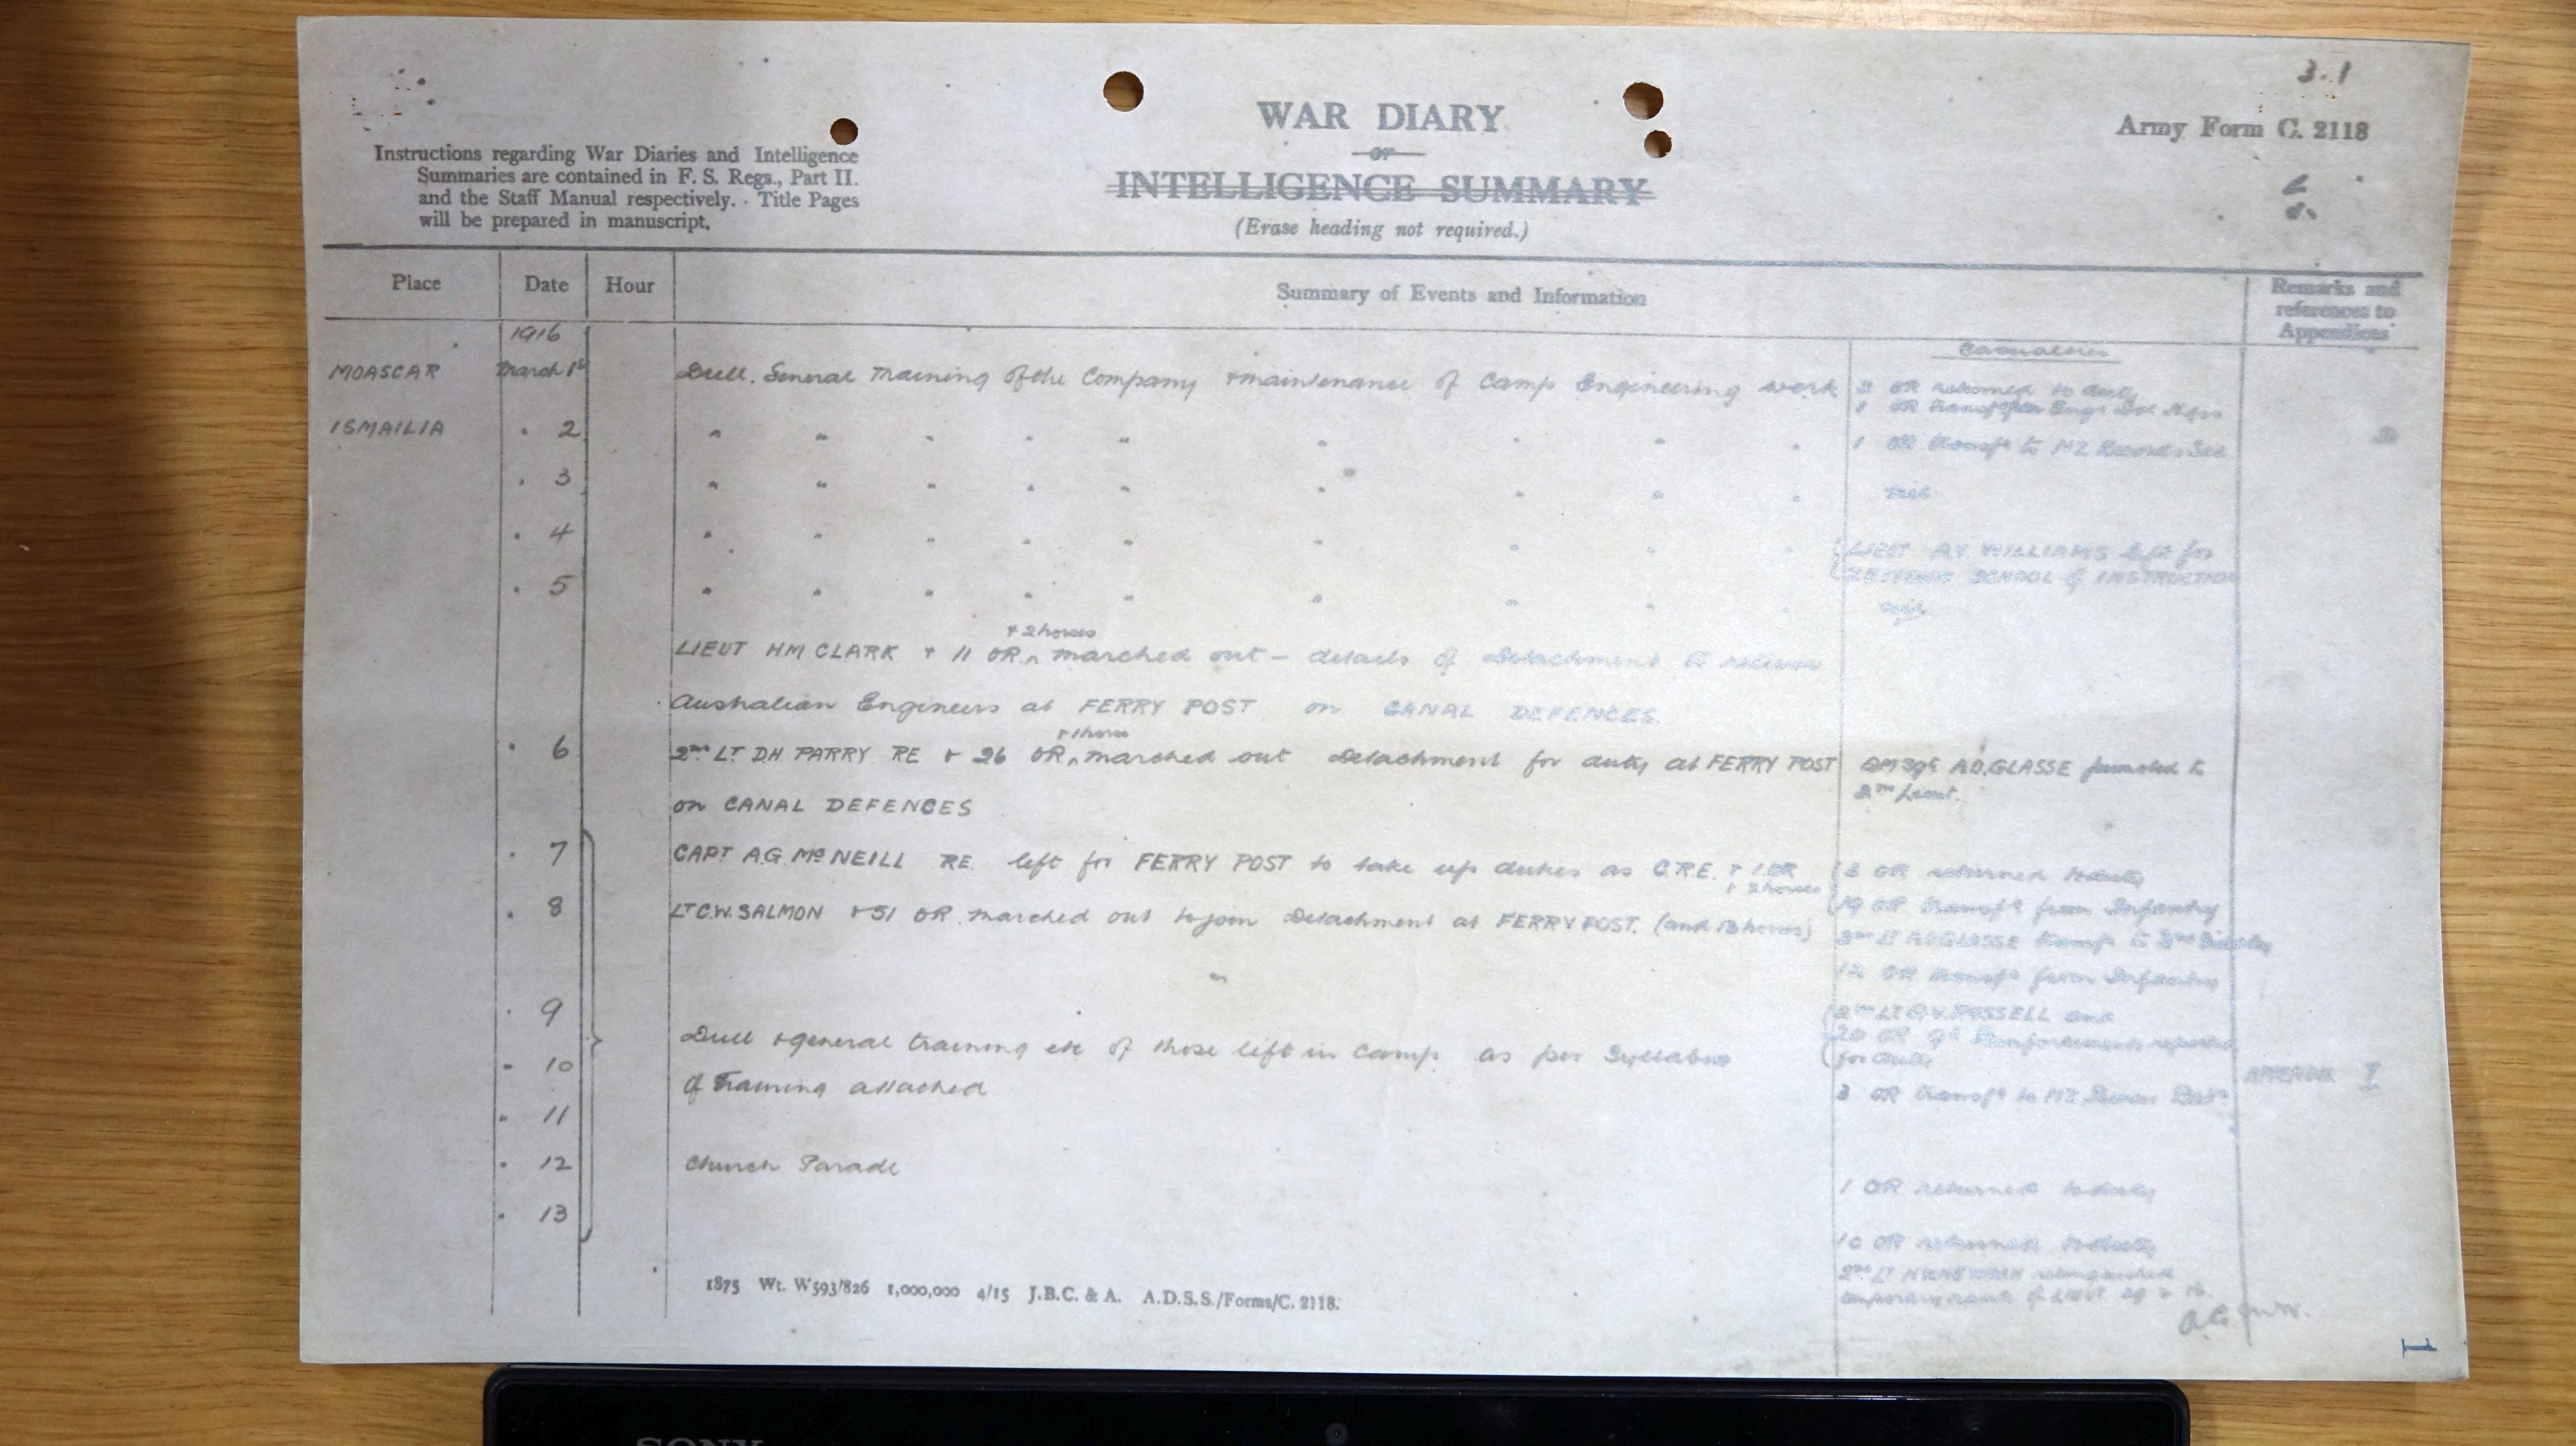 3.1
Army Form C. 2118
Instructions regarding War Diaries and Intelligence
Summaries are contained in F. S. Regs., Part II.
and the Staff Manual respectively. Title Pages
will be prepared in manuscript.
WAR DIARY
or
INTELLIGENCE SUMMARY
(Erase heading not required.)
Place Date Hour Summary of Events and Information Remarks and
references to
Appendices
1916
Casualties
MOASCAR March 1st Drill, General Training of the Company & maintenance of Camp Engineering work
OR returned to duty
1 OR transf
ISMAILIA " 2 " " " " " " " " " 1 OR transf to NZ Records Sec
" 3 " " " " " " " " " nil
" 4 " " " " " " " " " LIEUT WILLIAMS left for
SCHOOL of INSTRUCTION
" 5 " " " " " " " " " nil
+ 2 horses
LIEUT HM CLARK + 11 OR marched out — details of Detachment to relieve
Australian Engineers at FERRY POST on CANAL DEFENCES.
+ 1 horse
" 6 2nd LT D.H. PARRY RE + 26 OR marched out Detachment for duty at FERRY POST
on CANAL DEFENCES
A.D. GLASSE promoted to
2nd Lieut.
" 7 CAPT A.G. McNEILL RE left for FERRY POST to take up duties as C.R.E. + 1 OR
+ 2 horses
OR returned to duty
" 8 LT C.W. SALMON + 51 OR marched out to join Detachment at FERRY POST. (and 13 horses)
19 OR transfd from Infantry
GLASSE transf to
12 OR transfd from Infantry
" 9
" 10 Drill & general training etc of those left in camp as per Syllabus
of Training attached
20 OR Reinforcements reported
for duty
APPENDIX I
3 OR transfd to NZ
" 11
" 12 Church Parade
1 OR returned to duty
" 13
10 OR returned to duty
2nd LT relinquished
temporary rank of LIEUT
1875 Wt. W593/826 1,000,000 4/15 J.B.C. & A. A.D.S.S./Forms/C. 2118.
1
SONY